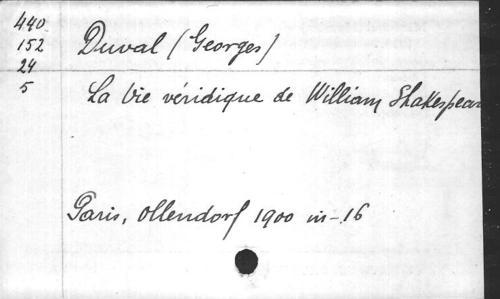 440
152
24
5
Duval (Georges)
La Vie véridique de William Shakespear
Paris, Ollendorf 1900 in-16